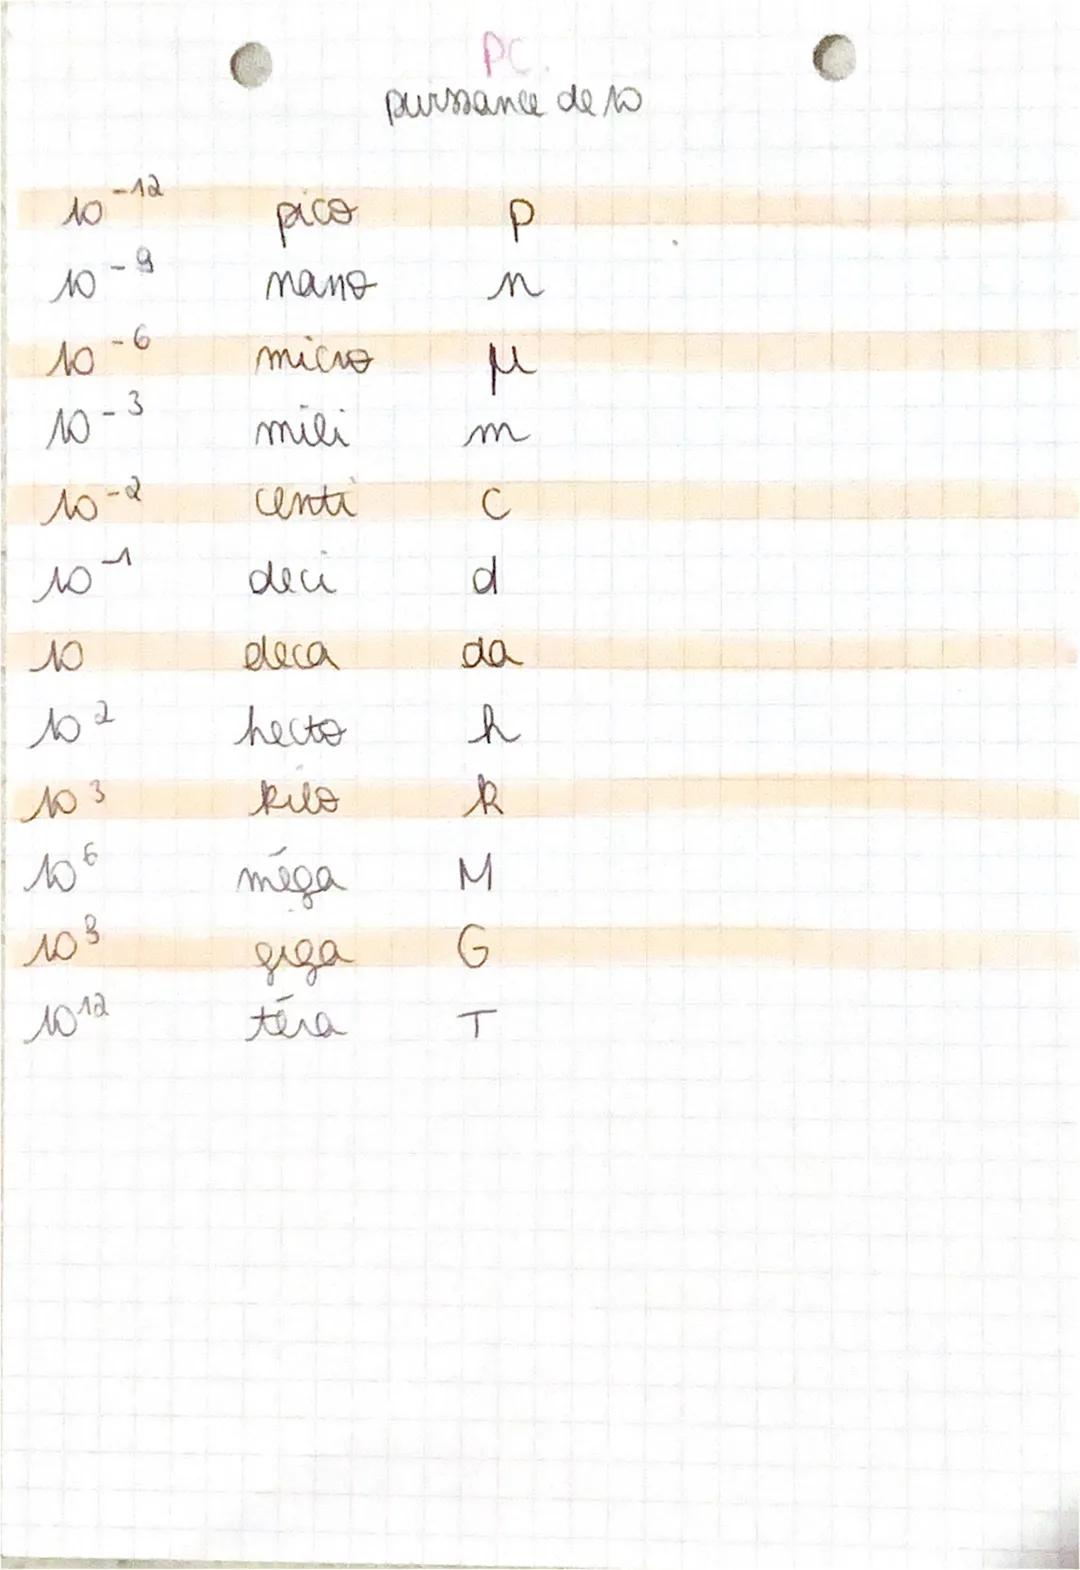 PC.
puissance de 10
10⁻¹² pico p
10⁻⁹ nano n
10⁻⁶ micro μ
10⁻³ mili m
10⁻² centi c
10⁻¹ deci d
10 deca da
10² hecto h
10³ kilo k
10⁶ méga M
10⁹ giga G
10¹² téra T